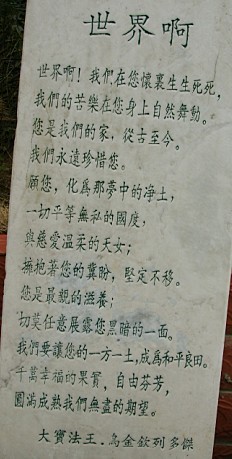 世界啊
世界啊！我們在您懷裏生生死死，
我們的苦樂在您身上自然舞動。
您是我們的家，從古至今。
我們永遠珍惜您。
願您，化爲那夢中的净土，
一切平等無私的國度，
與慈愛溫柔的天女；
擁抱著您的冀盼，堅定不移。
您是最親的滋養；
切莫任意展露您黑暗的一面。
我們要讓您的一方一土，成爲和平良田。
千萬幸福的果實、自由芬芳，
圓滿成熟我們無盡的期望。
大寶法王·烏金欽列多傑